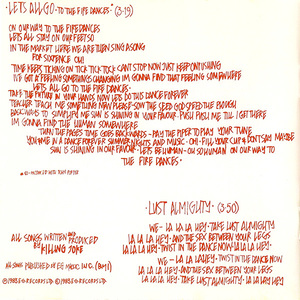 ·LETS ALL GO -TO THE FIRE DANCES- (3·19)
ON OUR WAY TO THE FIREDANCES
LETS ALL STAY ON OUR FEET SO
IN THE MARKET HERE WE ARE THEN SING A SONG
FOR SIXPENCE OH!
TIME KEEPS TICKING ON TICK TOCK TICK CANT STOP NOW JUST KEEP CONTINUING
I'VE GOT A FEELING SOMETHINGS CHANGING IM GONNA FIND THAT FEELING SOMEWHERE
LETS ALL GO TO THE FIRE DANCES
TAKE THE EXTRA IN YOUR HANDS NOW LETS DO THIS DANCE FOREVER
TEACHER TEACH ME SOMETHING NEW PLEASE· SOW THE SEED GOD SPEED THE PLOUGH
BACKWARDS TO SIMPLIFY ME SUN IS SHINING IN YOUR FAVOUR· PUSH PUSH ME TILL I GET THERE
IM GONNA FIND THE HUMAN SOMEWHERE
THEN THE PAGES TIME GOES BACKWARDS - PAY THE PIPER TO PLAY YOUR TUNE
YOU + ME IN A DANCE FOREVER SUMMER NIGHTS AND MUSIC· OH!· FILL YOUR CUP DON'T SAY MAYBE
SUN IS SHINING IN OUR FAVOUR· LETS BE HUMAN· OH SO HUMAN ON OUR WAY TO
THE FIRE DANCES·
·LUST ALMIGHTY· (3·50)
WE - LA LA LA HEY - TAKE LUST ALMIGHTY
LA LA LA HEY · AND THE SEX BETWEEN YOUR LEGS
LA LA LA HEY · TWIST IN THE DANCE NOW · LA LA LA HEY·
WE - LA LA LA HEY · TWIST IN THE DANCE NOW
LA LA LA HEY · AND THE SEX BETWEEN YOUR LEGS
LA LA LA HEY · TAKE LUST ALMIGHTY· LA LA LA HEY·
ALL SONGS WRITTEN AND PRODUCED
BY
KILLING JOKE
ALL SONGS PUBLISHED BY EG MUSIC LTD· (BMI)
© 1983 E·G· RECORDS LTD
℗ 1983 E·G· RECORDS LTD